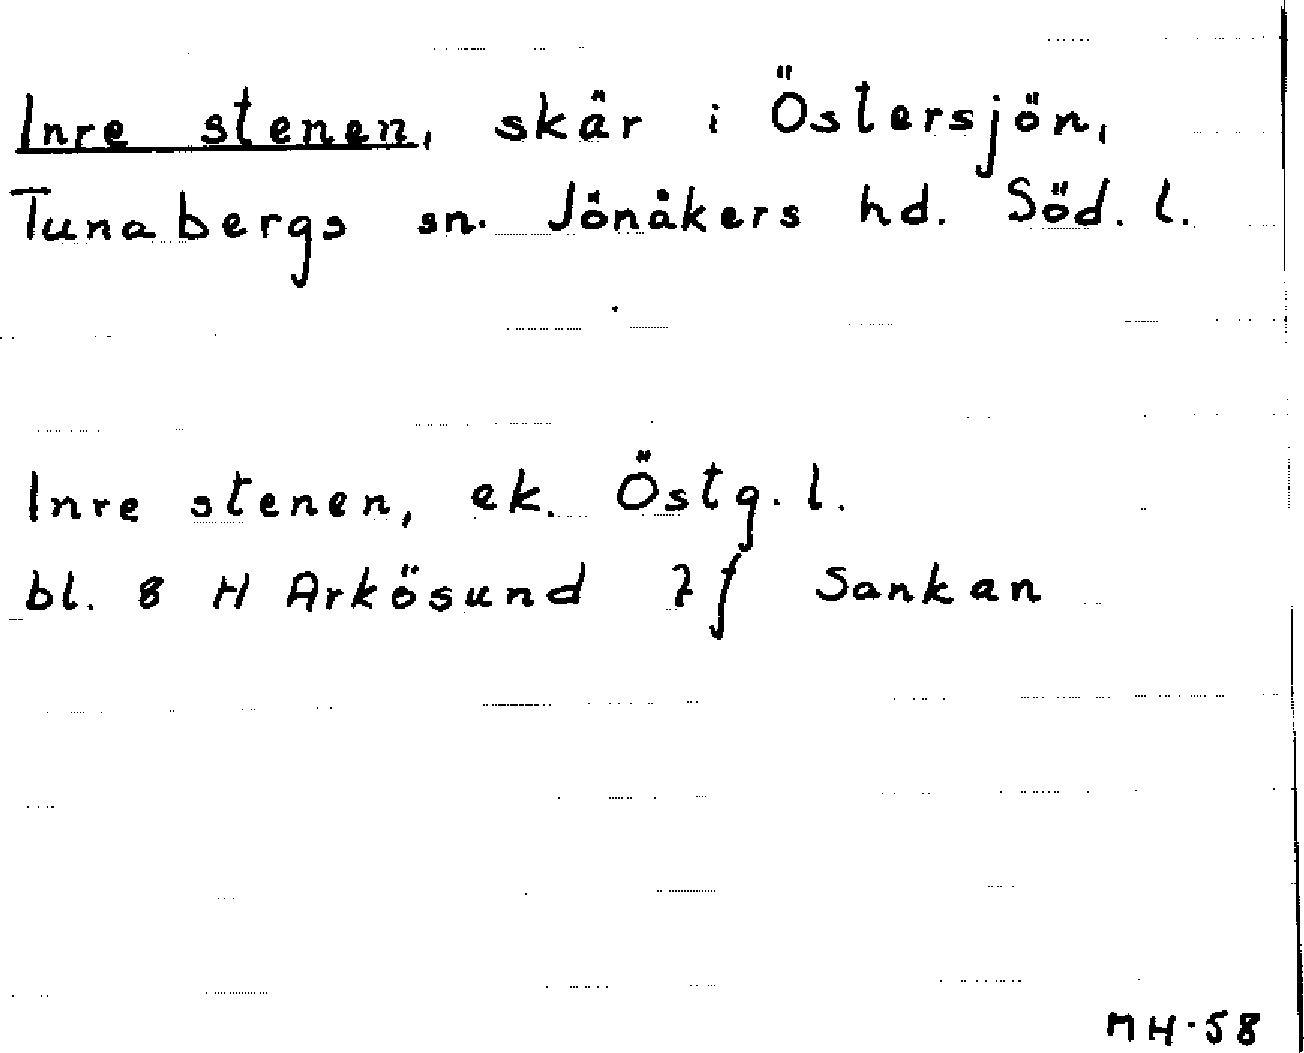 Inre stenen, skär i Östersjön,
Tunabergs sn. Jönåkers hd. Söd. l.
Inre stenen, ek. Östg. l.
bl. 8 H Arkösund 7f Sankan
MH-58